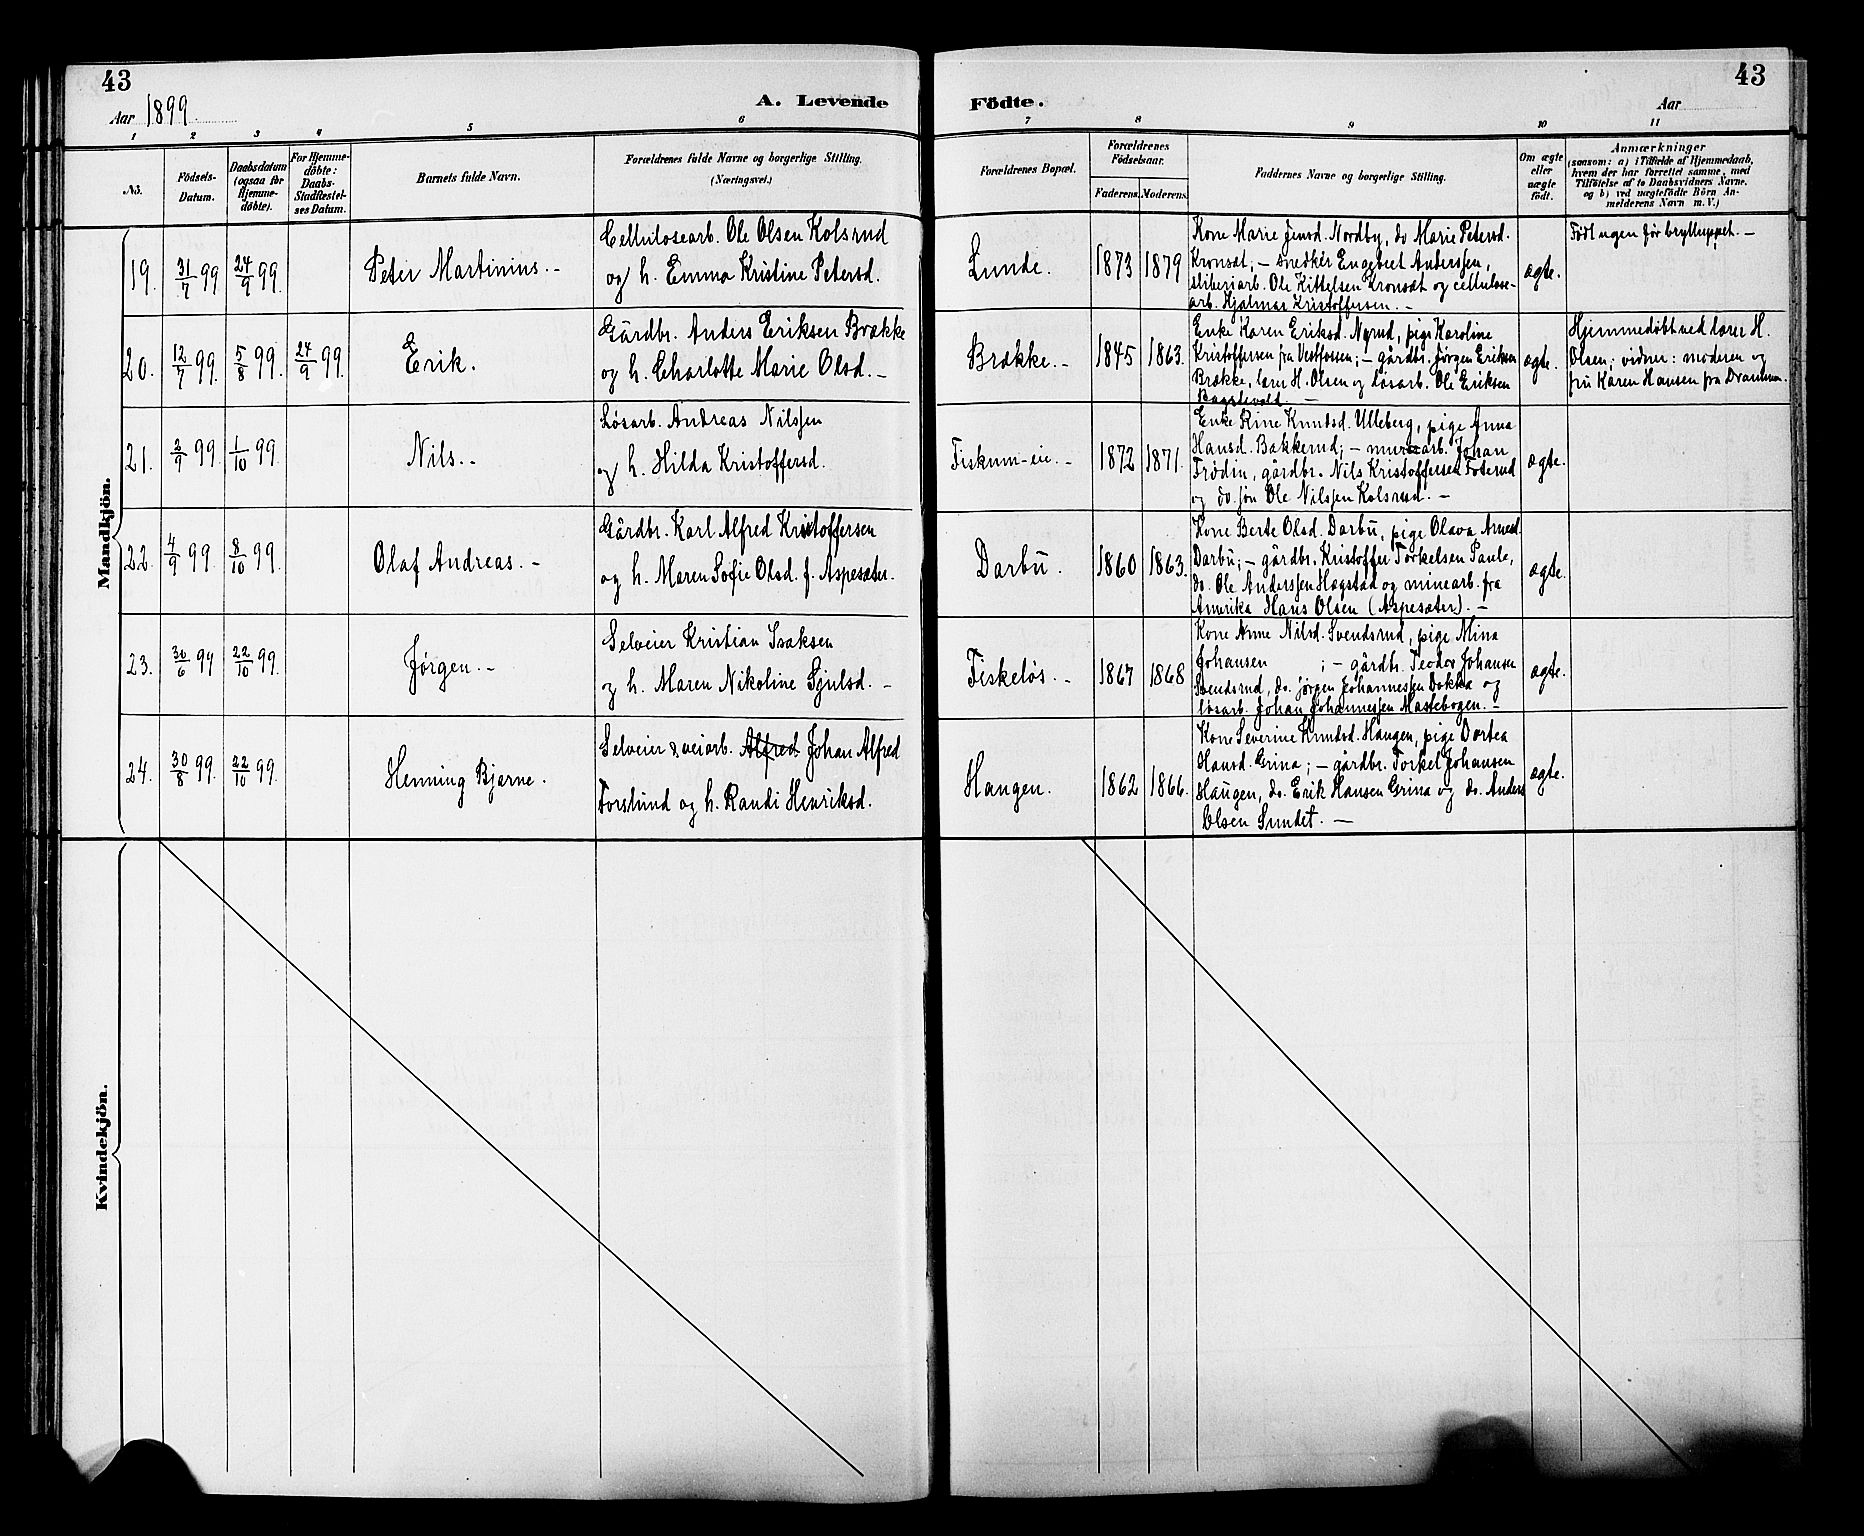 43
43
Aar 1899
A. Levende
Födte.
Aar
1 2 3 4 5 6 7 8 9 10 11
No.
Födsels-
Datum.
Daabsdatum
(ogsaa för
Hjemme-
döbte).
For Hjemme-
döbte:
Daabs-
Stadfæstel-
ses Datum.
Barnets fulde Navn.
Forældrenes fulde Navne og borgerlige Stilling.
(Næringsvei.)
Forældrenes Bopæl.
Forældrenes
Födselsaar.
Faderens. Moderens.
Faddernes Navne og borgerlige Stilling.
Om ægte
eller
uægte
födt.
Anmærkninger
(saasom: a) i Tilfælde af Hjemmedaab,
hvem der har forrettet samme, med
Tilföielse af to Daabsvidners Navne.
og b) ved uægtefödte Börn An-
melderens Navn m. V.)
Mandkjön.
19. 31/7 99 24/9 99. Peter Martinius. -
Cellulosearb. Ole Olsen Kolsrud
og h. Emma Kristine Petersd.
Lunde. 1873 1879
Kone Marie Jensd. Nordby, do Marie Petersd.
Kronsæt; - snedker Engebret Anderssen,
sliberiarb. Ole Kittelsen Kronsæt og cellulose-
arb. Hjalmar Kristoffersen. -
ægte.
Født ugen før brylluppet. -
20. 12/7 99. 5/8 99. 24/9 99. Erik.
Gårdbr. Anders Eriksen Brække
og h. Charlotte Marie Olsd. -
Brække. - 1845 1863.
Enke Karen Eriksd. Nyrud, pige Karoline
Kristoffersen fra Vestfossen; - gårdbr. Jørgen Eriksen
Brække, lærer H. Olsen og løsarb. Ole Eriksen
Bagstevold. -
ægte.
Hjemmedøbt ved lærer H.
Olsen; vidner: moderen og
fru Karen Hansen fra Drammen.
21. 2/9 99. 1/10 99. Nils. -
Løsarb. Andreas Nilssen
og h. Hilda Kristoffersd.
Fiskum-eie. - 1872 1871.
Enke Rine Knudsd. Ulleberg, pige Anna
Hansd. Bakkerud; - murarb. Johan
Frødin, gårdbr. Nils Kristoffersen Foterud
og do. søn Ole Nilssen Kolsrud. -
ægte.
22. 4/9 99. 8/10 99. Olaf Andreas. -
Gårdbr. Karl Alfred Kristoffersen
og h. Maren Sofie Olsd. f. Aspesæter.
Darbu. 1860 1863.
Kone Berte Olsd. Darbu, pige Olava Arnesd.
Darbu; - gårdbr. Kristoffer Torkelsen Saule,
do. Ole Anderssen Hægstad og minearb. fra
Amerika Hans Olsen (Aspesæter). -
ægte.
23. 30/6 99 22/10 99. Jørgen. -
Selveier Kristian Isaksen
og h. Maren Nikoline Gjulsd. -
Fiskeløs. - 1867 1868
Kone Anne Nilsd. Svendsrud, pige Mina
Johansen ; - gårdbr. Teodor Johansen
Svendsrud, do. Jørgen Johannessen Dokka og
løsarb. Johan Johannessen Mastebogen. -
ægte.
24. 30/8 99. 22/10 99. Henning Bjarne.
Selveier & veiarb. Alfred Johan Alfred
Forslund og h. Randi Henriksd.
Haugen. 1862 1866.
Kone Severine Knudsd. Haugen, pige Dortea
Hansd. Grina; - gårdbr. Torkel Johansen
Haugen, do. Erik Hansen Grina og do. Anders
Olsen Sundet. -
ægte.
Kvindekjön.